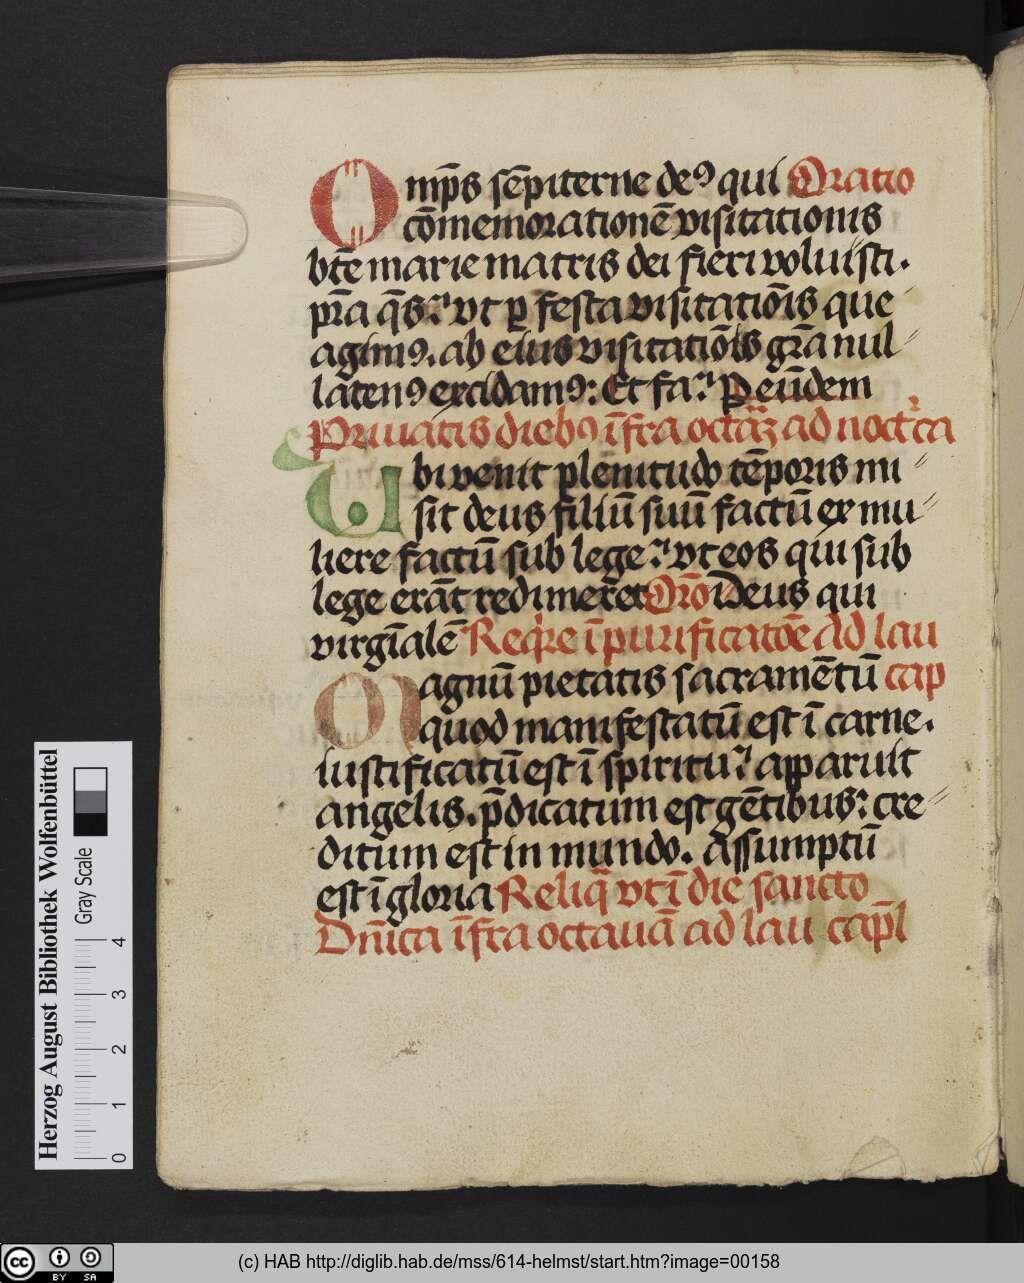 Omp̄s sēpiterne deꝰ qui Oratio
cōmemorationē visitationis
bt̄e marie matris dei fieri voluisti.
pr̄a q̄s: vt ꝑ festa visitatiōis que
agimꝰ. ab eius visitatiōis gr̄a nul⸗
latenꝰ excidamꝰ: Et fa: Per eūdem
Priuatis diebꝰ īfra octaꝝ ad noct'ca
Ubi venit plenitudo tēporis mi⸗
sit deus filiū suū factū ex mu⸗
liere factū sub lege: vt eos qui sub
lege erāt redimeret Orō Deus qui
virgīalē Reqre ī purificatōe Ad lau
Magnū pietatis sacramētū cap
quod manifestatū est ī carne.
iustificatū est ī spiritu: apparuit
angelis. p̄dicatum est gētibus: cre⸗
ditum est in mundo. Assumptū
est ī gloria Reliq̄ vt ī die sancto
Dn̄ica īfra octauā ad lau cap̄l
Herzog August Bibliothek Wolfenbüttel
Gray Scale
0 1 2 3 4
cc BY SA
(c) HAB http://diglib.hab.de/mss/614-helmst/start.htm?image=00158